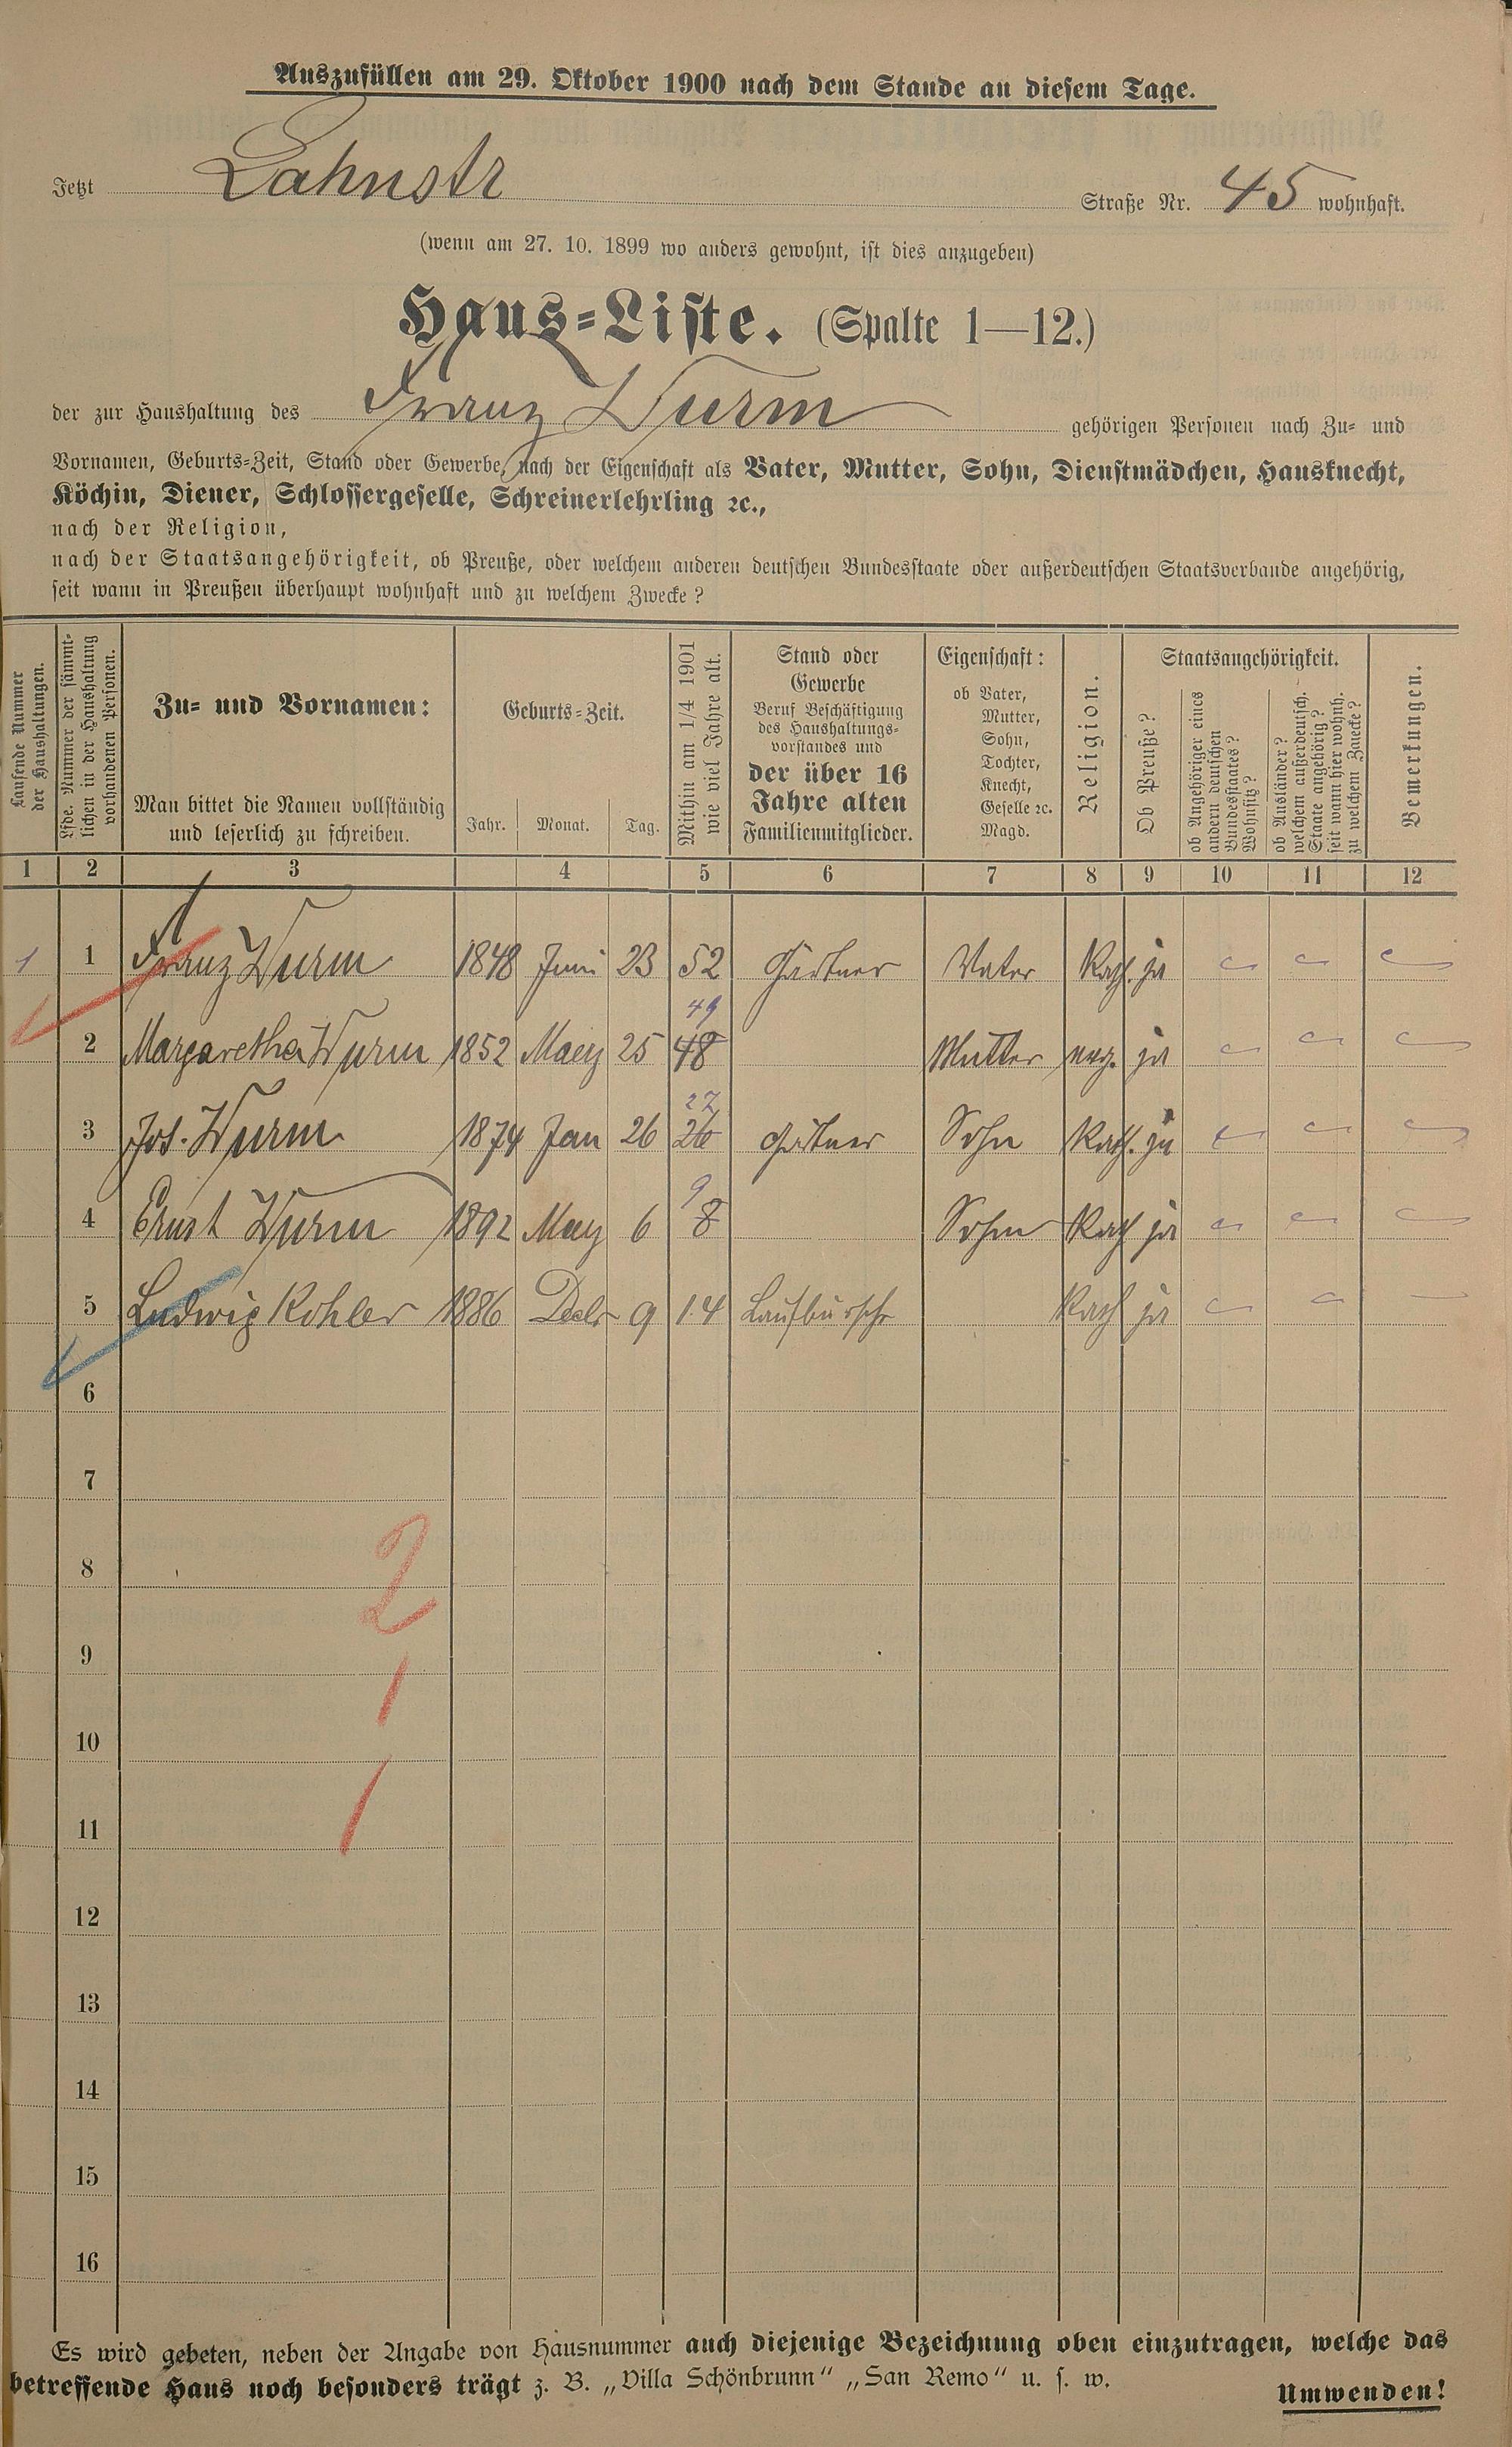 Auszufüllen am 29. Oktober 1900 nach dem Stande an diesem Tage.
Jetzt Lahnstr Straße Nr. 45 wohnhaft.
(wenn am 27. 10. 1899 wo anders gewohnt, ist dies anzugeben)
Haus-Liste. (Spalte 1—12.)
der zur Haushaltung des Franz Wurm gehörigen Personen nach Zu- und
Vornamen, Geburts-Zeit, Stand oder Gewerbe, nach der Eigenschaft als Vater, Mutter, Sohn, Dienstmädchen, Hausknecht,
Köchin, Diener, Schlossergeselle, Schreinerlehrling ꝛc.,
nach der Religion,
nach der Staatsangehörigkeit, ob Preuße, oder welchem anderen deutschen Bundesstaate oder außerdeutschen Staatsverbande angehörig,
seit wann in Preußen überhaupt wohnhaft und zu welchem Zwecke?
Laufende Nummer
der Haushaltungen.
Lfde. Nummer der sämmt-
lichen in der Haushaltung
vorhandenen Personen.
Zu- und Vornamen:
Man bittet die Namen vollständig
und leserlich zu schreiben.
Geburts-Zeit.
Jahr. Monat. Tag.
Mithin am 1/4 1901
wie viel Jahre alt.
Stand oder
Gewerbe
Beruf Beschäftigung
des Haushaltungs-
vorstandes und
der über 16
Jahre alten
Familienmitglieder.
Eigenschaft:
ob Vater,
Mutter,
Sohn,
Tochter,
Knecht,
Geselle ꝛc.
Magd.
Religion.
Staatsangehörigkeit.
Ob Preuße?
ob Angehöriger eines
andern deutschen
Bundesstaates?
Wohnsitz?
ob Ausländer?
welchem außerdeutsch.
Staate angehörig?
seit wann hier wohnh.
zu welchem Zwecke?
Bemerkungen.
1 2 3 4 5 6 7 8 9 10 11 12
1 1 Franz Wurm 1848 Juni 23 52 Gärtner Vater Kath. ja
49
2 Margaretha Wurm 1852 Maerz 25 48 Mutter ja
27
3 Jos. Wurm 1874 Jan 26 26 Gärtner Sohn Kath. ja
9
4 Ernst Wurm 1892 6 8 Sohn Kath ja
5 Ludwig Kohler 1886 Decbr 9 14 Laufbursche Kath ja
6
7
2
8
9
1
10
1
11
12
13
14
15
16
Es wird gebeten, neben der Angabe von Hausnummer auch diejenige Bezeichnung oben einzutragen, welche das
betreffende Haus noch besonders trägt z. B. „Villa Schönbrunn“ „San Remo“ u. s. w.
Umwenden!